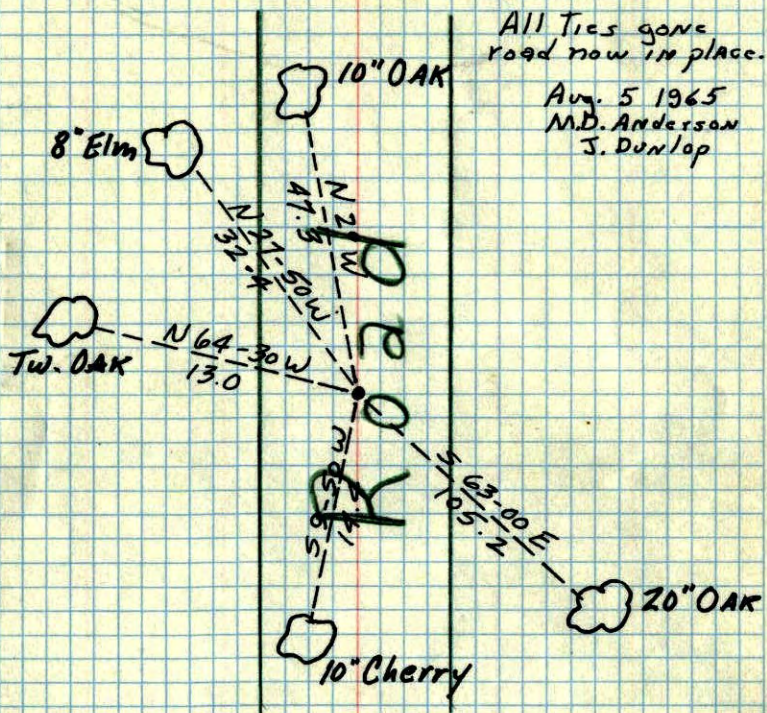 All Ties gone
road now in place.
Aug. 5 1965
M.D. Anderson
J. Dunlop
10" OAK
8" Elm
N 2 W
47.5
N 27-50 W
32.4
Road
Tw. OAK
N 64-30 W
13.0
S 63-00 E
105.2
S 50 W
20" OAK
10" Cherry